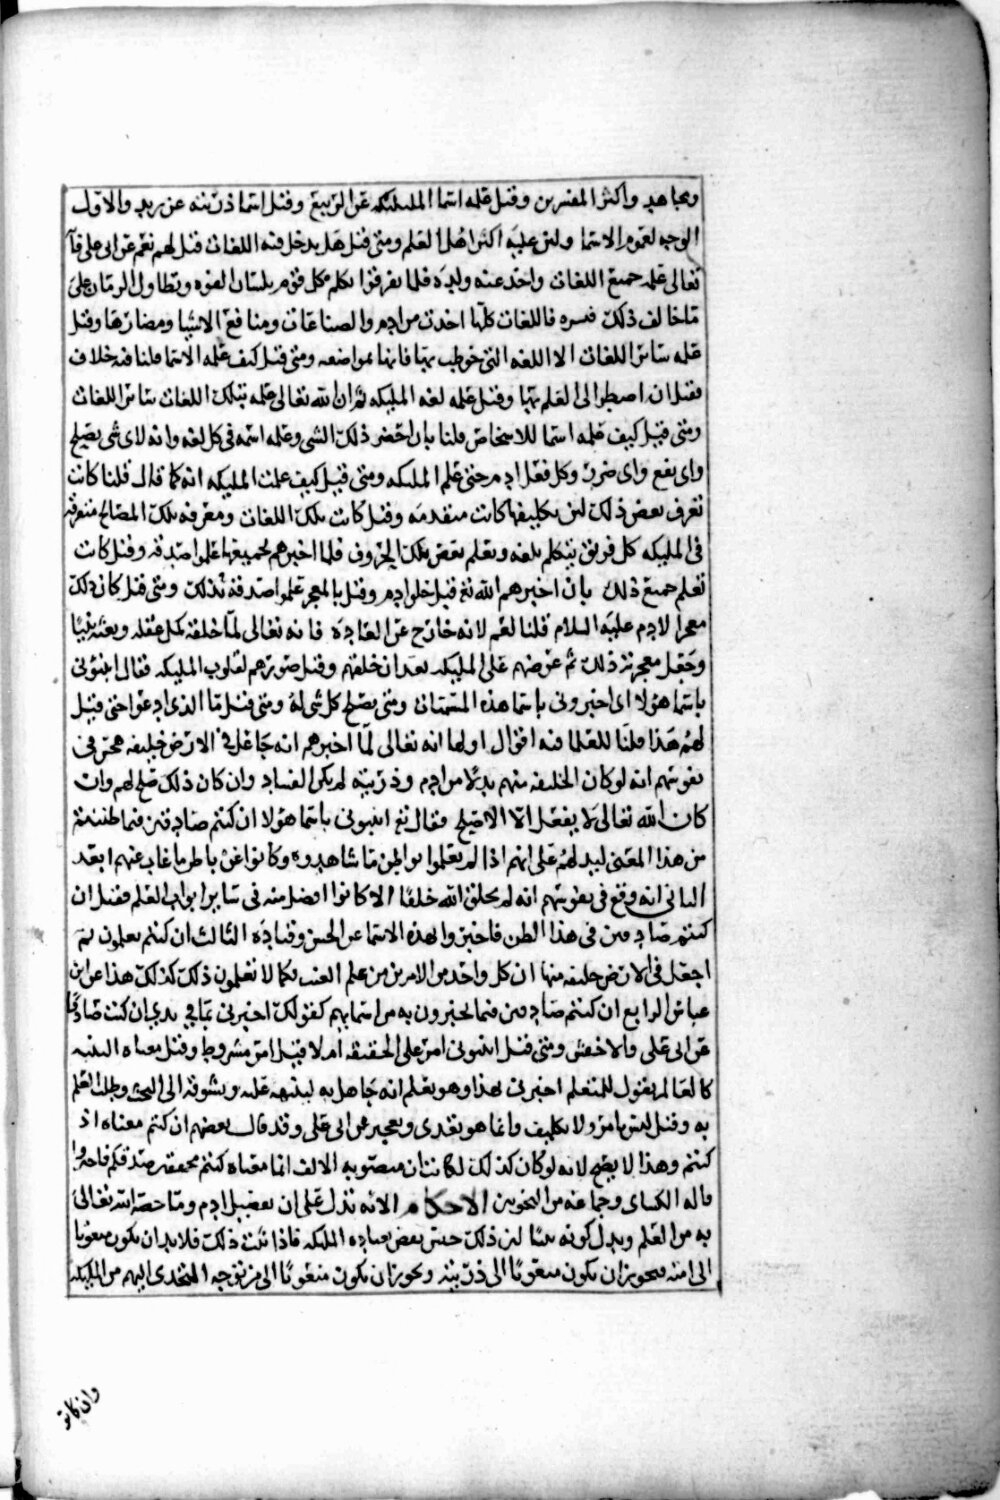 ومجاهد واكثر المفسرين وقيل علمه اسما الملىىكه عن الربيع وقيل اسما ذريته عن زيد والاول
الوجه لعموم الاسما ولىن عليه اكثر اهل العلم ومتى قيل هل يدخل فيه اللغات قيل لهم نعم عن ابي علي فانه
تعالى علمه جميع اللغات واخذ عنه ولده فلما تفرقوا تكلم كل قوم بلسان الفوه وتطاول الزمان على
ما خالف ذلك فنسوه فاللغات كلها اخذت من ادم والصناعات ومنافع الاشيا ومضارها وقيل
علمه ساىر اللغات الا اللغه التي خوطب بها فانها مواضعه ومتى قيل كيف علمه الاسما قلنا فيه خلاف
فقيل ان اضطر الى العلم بها وقيل علمه لغه المليكه ثم ان الله تعالى علمه بتلك اللغات ساىر اللغات
ومتى قيل كيف علمه اسما للاشخاص قلنا بان احضر ذلك الشي وعلمه اسمه في كل لغه وانه لاي شي يصلح
واي نفع واي ضرر وكل فعل ادم حتى علم المليكه ومتى قيل كيف علمت المليكه انه كما قال قلنا كانت
تعرف بعض ذلك لىن تكليفها كانت متقدمه وقيل كانت تلك اللغات ومعرفه تلك المصالح متفرقه
في المليكه كل فريق يتكلم بلغه ويعلم بعض تلك الحروف فلما اخبرهم بجميعها علموا صدقه وقيل كانت
تعلم جميع ذلك بان اخبرهم الله تع قبل خلق ادم وقيل بالمعجز علموا صدقه بذلك ومتى قيل كان ذلك
معجزا لادم عليه السلام قلنا نعم لانه خارج عن العاده فانه تعالى لما خلقه كمل عقله وبعثه نبيا
وجعل معجزته ذلك ثم عرضهم على المليكه بعد ان خلقهم وقيل صورهم لقلوب المليكه فقال انبئوني
باسما هولا اي اخبروني باسما هذه المسميات ومتى يصلح كل شي له ومتى قيل ما الذي ادعوا حتى قيل
لهم هذا قلنا للعلما فيه اقوال اولها انه تعالى لما اخبرهم انه جاعل في الارض خليفه هجز في
نفوسهم انه لو كان الخليفه منهم بدلا من ادم وذريته لم يكن الفساد وان كان ذلك صلح لهم وان
كان الله تعالى لا يفعل الا الاصلح فقال تع انبىوني باسما هولا ان كنتم صادقين فيما ظننتم
من هذا المعنى ليدلهم على انهم اذا لم يعلموا بواطن ما شاهدوه وكانوا عن باطن ما غاب عنهم ابعد
الثاني انه وقع في نفوسهم انه لم يخلق الله خلقا الا كانوا افضل منه في ساير ابواب العلم فقيل ان
كنتم صادقين في هذا الظن فاخبروا بهذه الاسما عن الحسن وقتاده الثالث ان كنتم تعلمون لم
اجعل في الارض خليفه منها ان كل واحد من الامرين من علم الغيب فكما لا تعلمون ذلك كذلك هذا عن ابن
عباس الرابع ان كنتم صادقين فيما تخبرون به من اسمائهم كقولك اخبرني بما في يدي ان كنت صادقا
عن ابي علي والاخفش ومتى قيل انبىوني امر على الحقيقه ام لا قيل امر مشروط وقيل معناه التنبيه
كالعالم يقول للمتعلم اخبرني بهذا وهو يعلم انه جاهل به لينبهه عليه ويشوقه الى البحث وطلب العلم
به وقيل ليس بامر ولا تكليف وانما هو تحدي وتعجيز عن ابي علي وقد قال بعضهم ان كنتم معناه اذ
كنتم وهذا لا يصح لانه لو كان كذلك لكانت ان منصوبه الالف انما معناه كنتم محققين صدقكم فاخبروا
قاله الكساى وجماعه من النحويين الاحكام الايه تدل على ان تفضيل ادم وما خصه الله تعالى
به من العلم ويدل كونه نبيا لىن ذلك حىىذ بعض بعباده المليكه فاذا ثبت ذلك فلا بد ان يكون مبعوثا
الى امته فيجوز ان يكون مبعوثا الى ذريته ويجوز ان يكون مبعوثا الى من توجه التحدي اليهم من المليكه
وان كانو